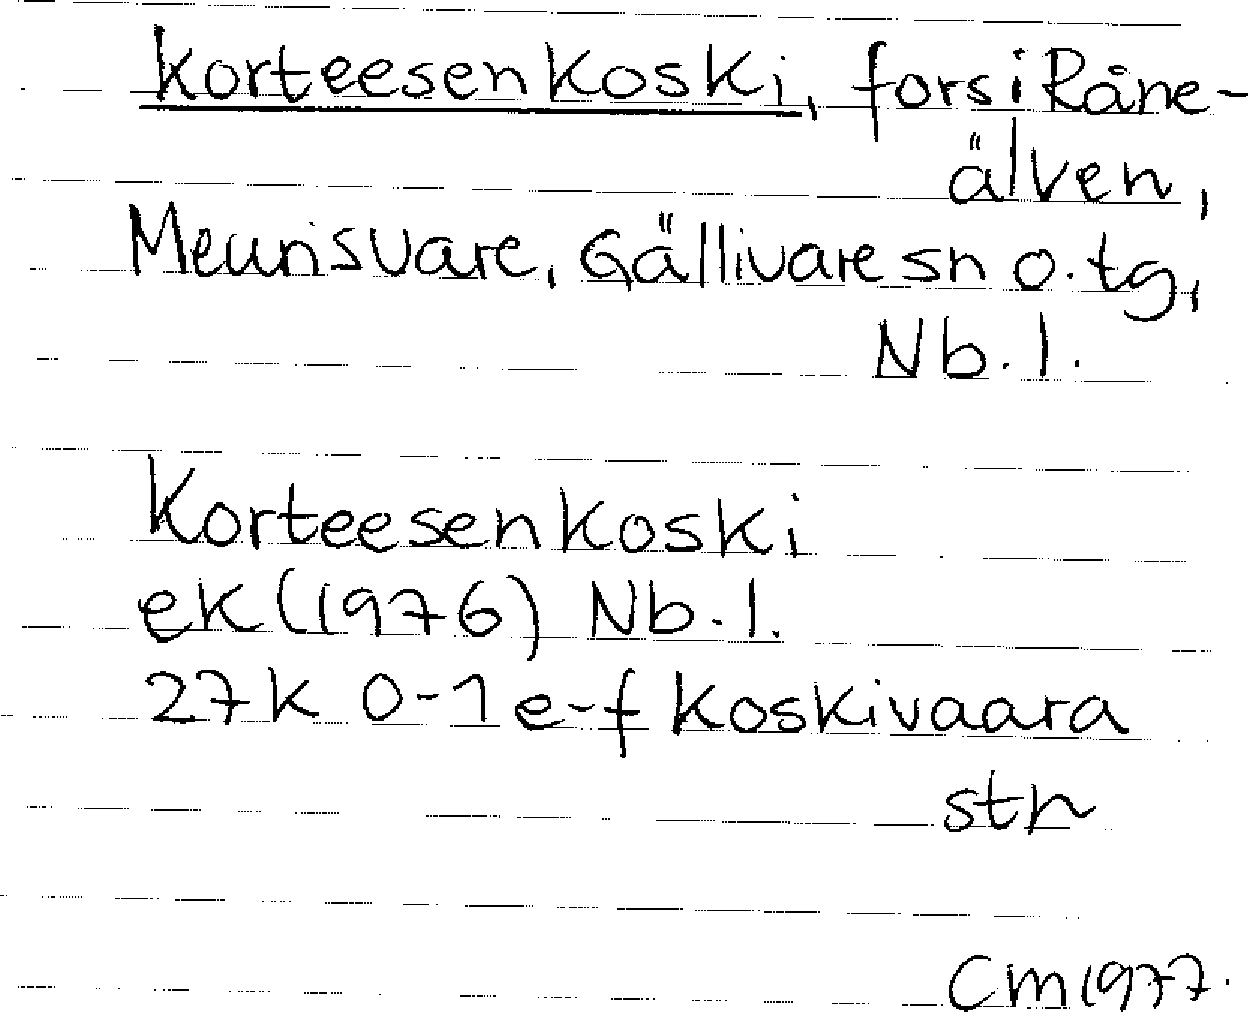 Korteesenkoski, fors i Råne-
älven,
Meunisvare, Gällivare sn o. tg,
Nb. l.
Korteesenkoski
ek (1976) Nb. l.
27K 0-1 e-f Koskivaara
stn
CM 1977.